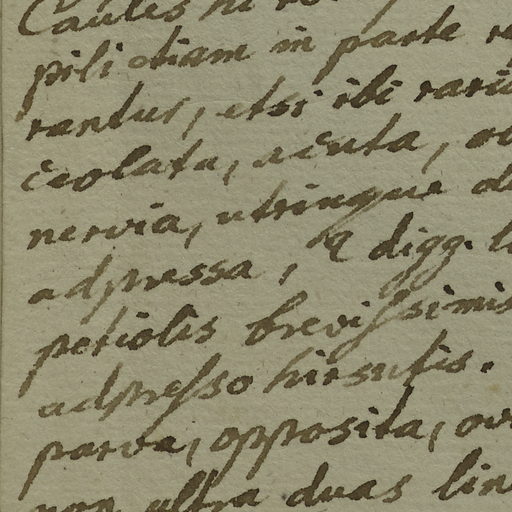 Caules hi
pili etiam in parte
rantur, etsi ibi rari
ceolata, acuta,
nervia, utrinque
adpressa, digg.
petiolis breviſsimis
adpreſso hirsutis.
parva, opposita, ov
non ultra duas lin